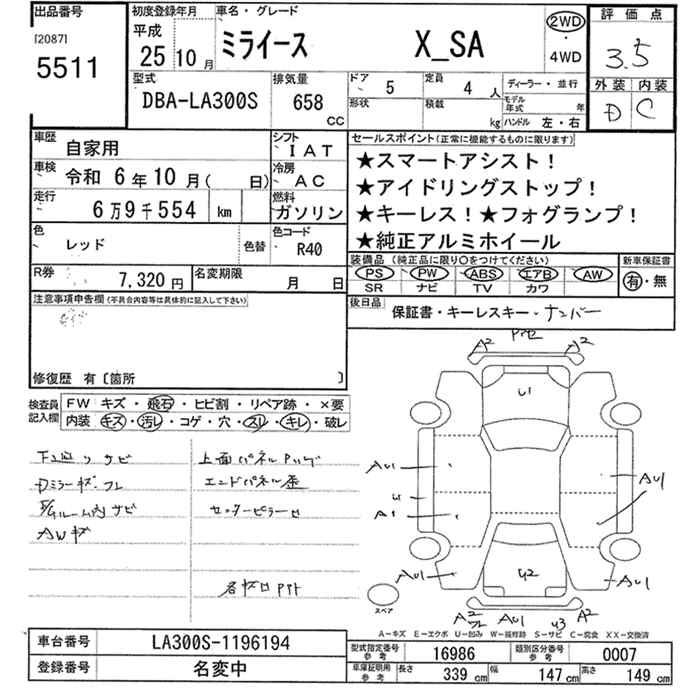 出品番号
[2087]
5511
初度登録年月
平成
25年10月
車名・グレード
ミライース X_SA
2WD
・
4WD
評価点
3.5
外装 内装
D C
型式
DBA-LA300S
排気量
658
CC
ドア 5
定員 4 人
形状
積載 kg
ディーラー・並行
モデル年式 年
ハンドル 左・右
車歴
自家用
シフト
IAT
車検
令和 6年10月( 日)
冷房
AC
走行
6万9千554 km
燃料
ガソリン
色
レッド
色替
色コード
R40
R券
7,320円
名変期限
月 日
セールスポイント(正常に機能するものに限ります)
★スマートアシスト!
★アイドリングストップ!
★キーレス!★フォグランプ!
★純正アルミホイール
装備品(純正品に限り○をつけてください)
PS PW ABS エアB AW
SR ナビ TV カワ
新車保証書
有・無
後日品
保証書・キーレスキー・ナンバー
注意事項申告欄(不具合内容等は具体的に記入して下さい)
修復歴 有〔箇所 〕
検査員
記入欄
FW キズ・飛石・ヒビ割・リペア跡・×要
内装 キズ・汚レ・コゲ・穴・スレ・キレ・破レ
下廻りサビ
Dミラーキズ・フレ
ルーム内サビ
AWキズ
上面パネル
エンドパネル歪
センターピラーキセ
各キズ凹
A2
A2
U1
AU1
U
A1
AU1
AU1
U2
AU1
A2
AU1
U3
A2
スペア
A-キズ E-エクボ U-凹み W-補修跡 S-サビ C-腐食 XX-交換済
車台番号
LA300S-1196194
登録番号
名変中
型式指定番号
参考
16986
類別区分番号
参考
0007
車庫証明用
参考
長さ 339 cm
幅 147 cm
高さ 149 cm